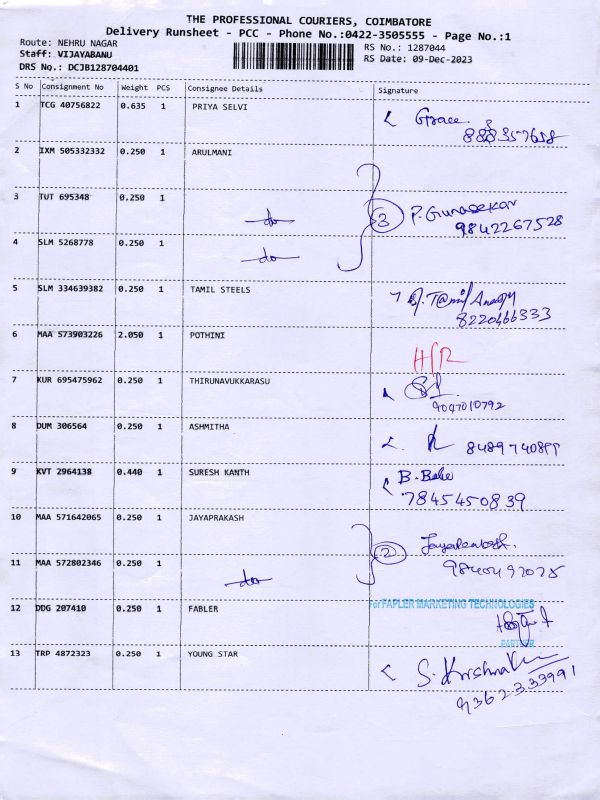 THE PROFESSIONAL COURIERS, COIMBATORE
Delivery Runsheet - PCC - Phone No.:0422-3505555 - Page No.:1
Route: NEHRU NAGAR
RS No.: 1287044
Staff: VIJAYABANU
RS Date: 09-Dec-2023
DRS No.: DCJB128704401
S No Consignment No Weight PCS Consignee Details Signature
1 TCG 40756822 0.635 1 PRIYA SELVI Grace.
2 IXM 505332332 0.250 1 ARULMANI
3 TUT 695348 0.250 1 do 3 P. Gunasekar
9842267528
4 SLM 5268778 0.250 1 do
5 SLM 334639382 0.250 1 TAMIL STEELS
8220466333
6 MAA 573903226 2.050 1 POTHINI
7 KUR 695475962 0.250 1 THIRUNAVUKKARASU
9047010792
8 DUM 306564 0.250 1 ASHMITHA
9 KVT 2964138 0.440 1 SURESH KANTH B.
7845450839
10 MAA 571642065 0.250 1 JAYAPRAKASH 2
11 MAA 572802346 0.250 1 do
12 DDG 207410 0.250 1 FABLER
For FAPLER MARKETING TECHNOLOGIES
PARTNER
13 TRP 4872323 0.250 1 YOUNG STAR